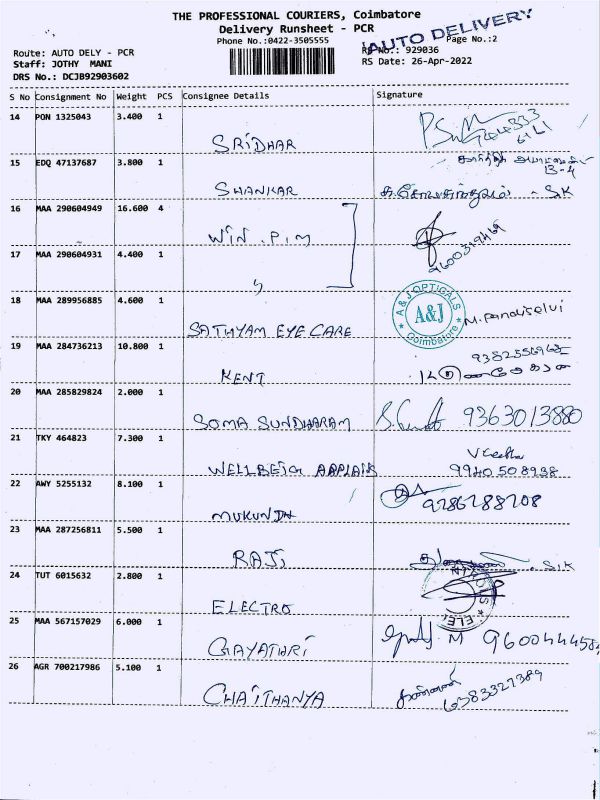 THE PROFESSIONAL COURIERS, Coimbatore
Delivery Runsheet - PCR
AUTO DELIVERY
Phone No.:0422-3505555
Page No.:2
Route: AUTO DELY - PCR
929036
Staff: JOTHY MANI
RS Date: 26-Apr-2022
DRS No.: DCJB92903602
S No Consignment No Weight PCS Consignee Details Signature
14 PON 1325043 3.400 1
SRIDHAR
15 EDQ 47137687 3.800 1
B-4
SHANKAR
S.K
16 MAA 290604949 16.600 4
WIN .P.M
17 MAA 290604931 4.400 1
"
18 MAA 289956885 4.600 1
A & J OPTICALS
A&J
Coimbatore
M. Pandiselvi
SATHYAM EYE CARE
19 MAA 284736213 10.800 1
KENT
20 MAA 285829824 2.000 1
SOMA SUNDHARAM 9363013880
21 TKY 464823 7.300 1
9940508938
22 AWY 5255132 8.100 1
9286288208
23 MAA 287256811 5.500 1
RAJI
S.K
24 TUT 6015632 2.800 1
ELECTRO
25 MAA 567157029 6.000 1
GAYATHRI
26 AGR 700217986 5.100 1
CHAITHANYA
6383327389